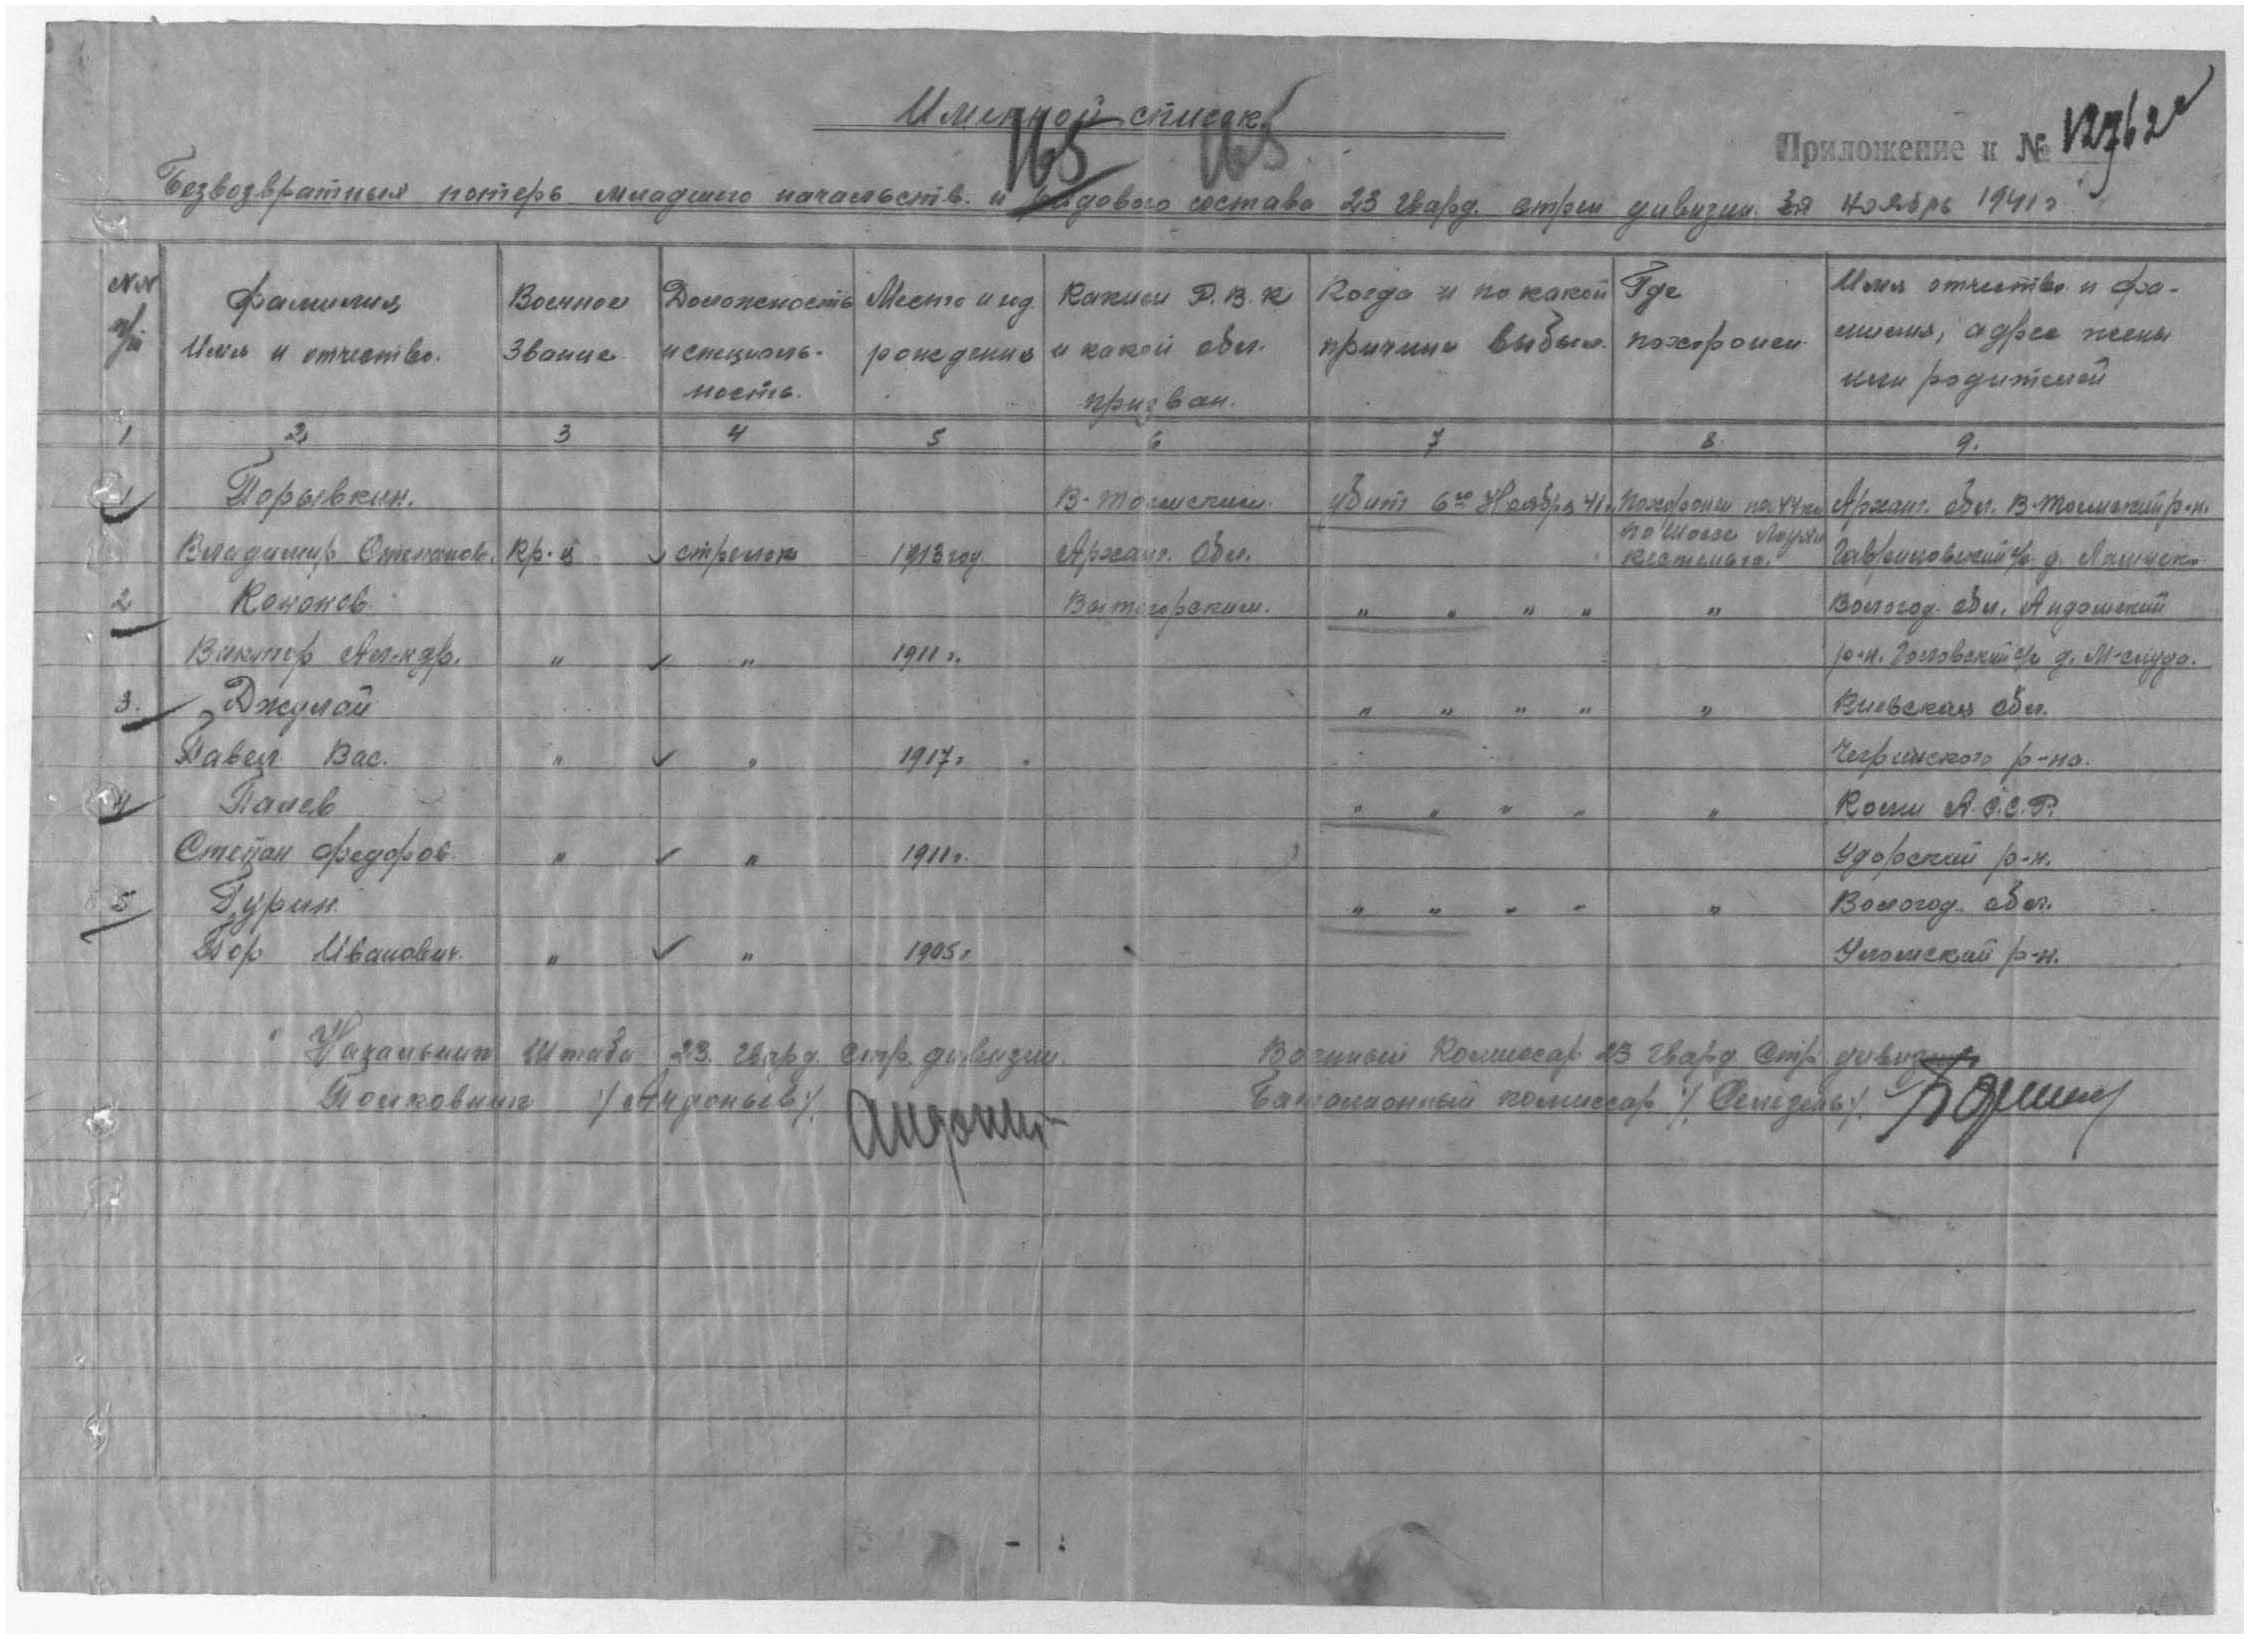 Именной список
165 165
Приложение к № 12762с
Безвозвратных потерь младшего начальств. и рядового состава 23 гвард. стрел дивизии за ноябрь 1941г
№№ п/п
Фамилия Имя и отчество.
Военное Звание
Должность и специаль- ность.
Место и год рождения
Каким Р.В.К и какой обл. призван.
Когда и по какой причине выбыл.
Где похоронен
Имя отчество и фа- милия, адрес жены или родителей
1 2 3 4 5 6 7 8. 9.
1 Порывкин. В-Тоемским. убит 6го Ноября 41г. Похоронен на 44 км Арханг. обл. В-Тоемский р-н.
по шоссе Лоухи
Владимир Степанов. Кр-ц стрелок 1913 год. Арханг. Обл. Кестеньга. Гавриловский с/с д.
2 Кононов Вытегорским. " " " " " Вологод. обл. Андомский
Виктор Ал-ндр. " " 1911 г. р-н. с/с д. М-слуда.
3. Джулай " " " " " Киевская обл.
Павел Вас. " " 1917г Чегринского р-на.
4 Палев " " " " " Коми А.С.С.Р.
Степан Федоров " " 1911г. Удорский р-н.
5 Гурин. " " " " " Вологод. обл.
Иванович. " " 1905г Уломский р-н.
Начальник Штаба 23 гвард. Стр. дивизии. Военный Комиссар 23 гвард Стр дивизии
Полковник /Андоньев/. Батальонный комиссар / Селезень/.